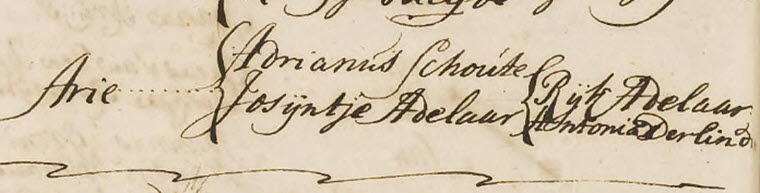 Arie
Adrianus Schoute
Josijntje Adelaar
Rijk Adelaar
Antonia Derlind